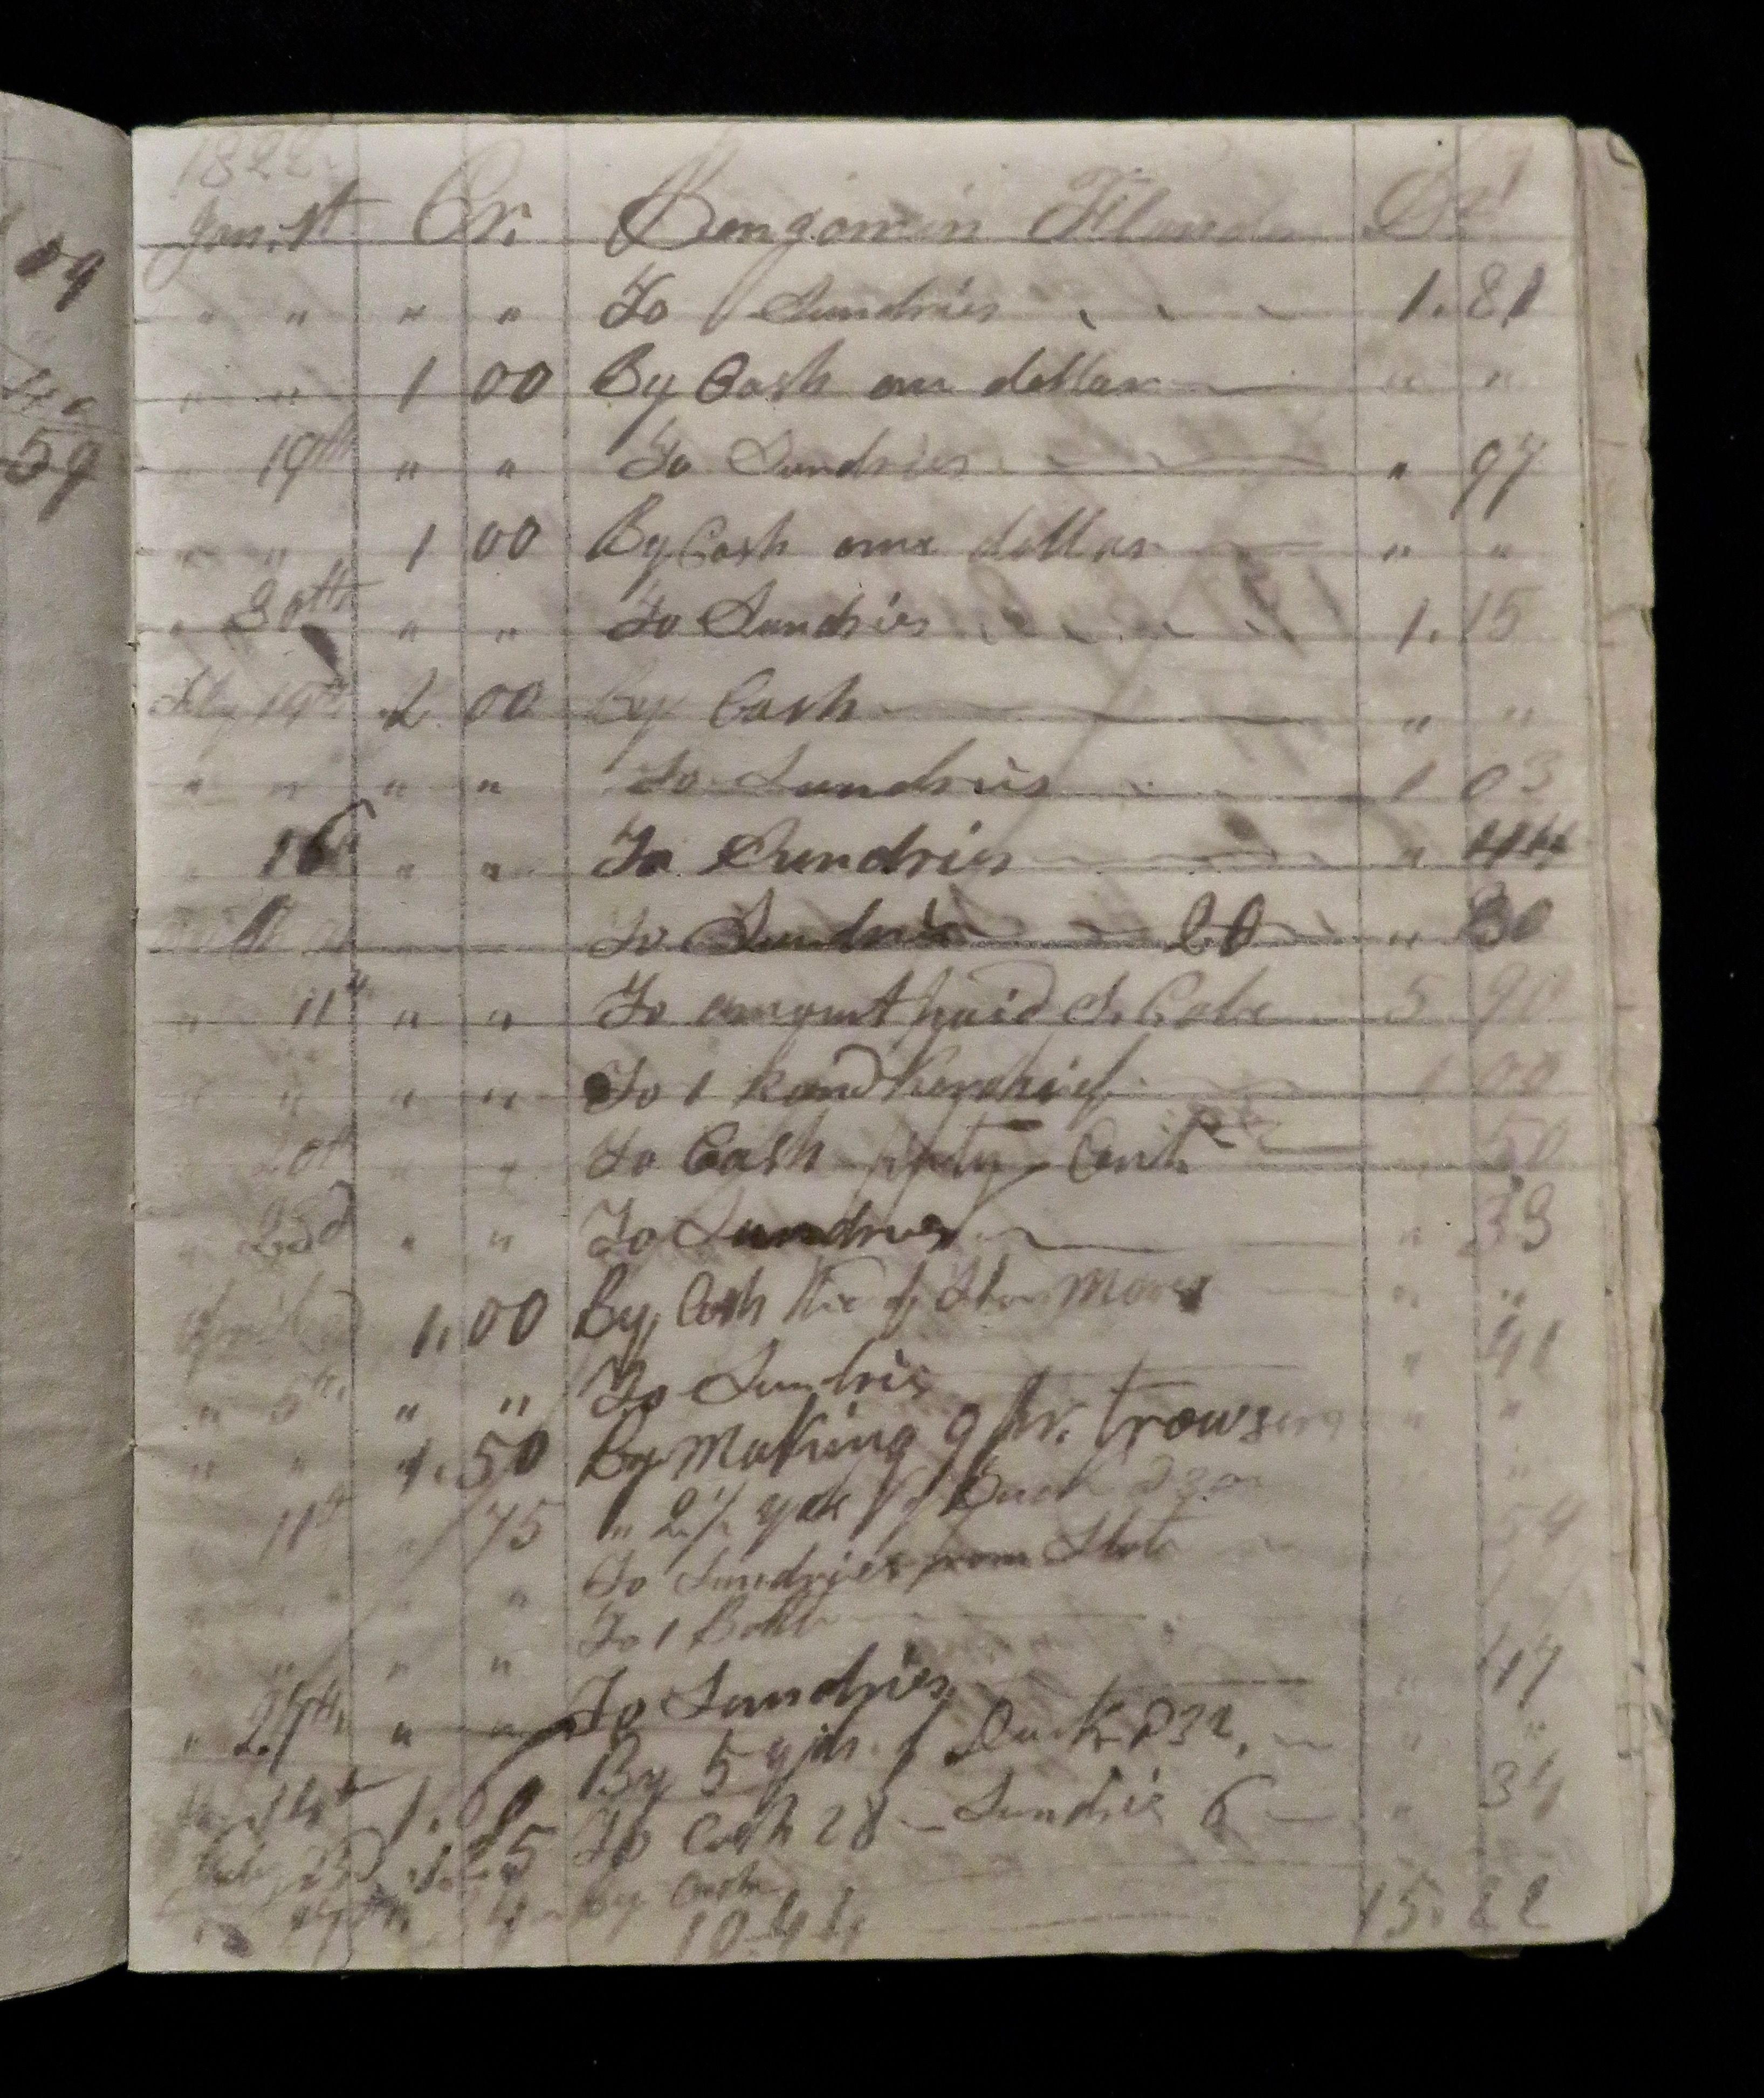 09
59
1822
Jan. 1st Cr. Bengamin Dr.
" " " " To Sundries 1.81
" " 1 00 By Cash one dollar " "
" 19th " " To Sundries " 97
" " 1 00 By Cash one dollar " "
" 30th " " To Sundries 1.15
2 00 By Cash " "
" " " " To Sundries 1 03
" 16 " " To Sundries " 44
To Sundries 20 " 30
" 11 " " To amount paid 5 90
" " " " To 1 handkerchief 1 00
20th " " To Cash fifty Cents 50
" 23d " " To Sundries " 33
April 1.00 By Cash " "
" 5th " " To Sundries " 41
" " 1.50 By Making 9 pr. trowsers " "
11th " 75 " 2 1/2 yds of Duck "
" To Sundries from 54
" " " " To 1
" 27th " " To Sundries " 17
By 5 yds of Duck 32. " "
14th 1.60 To Cash 28 Sundries 6 " 34
23d 1.25 By Cash
10.44 15.22